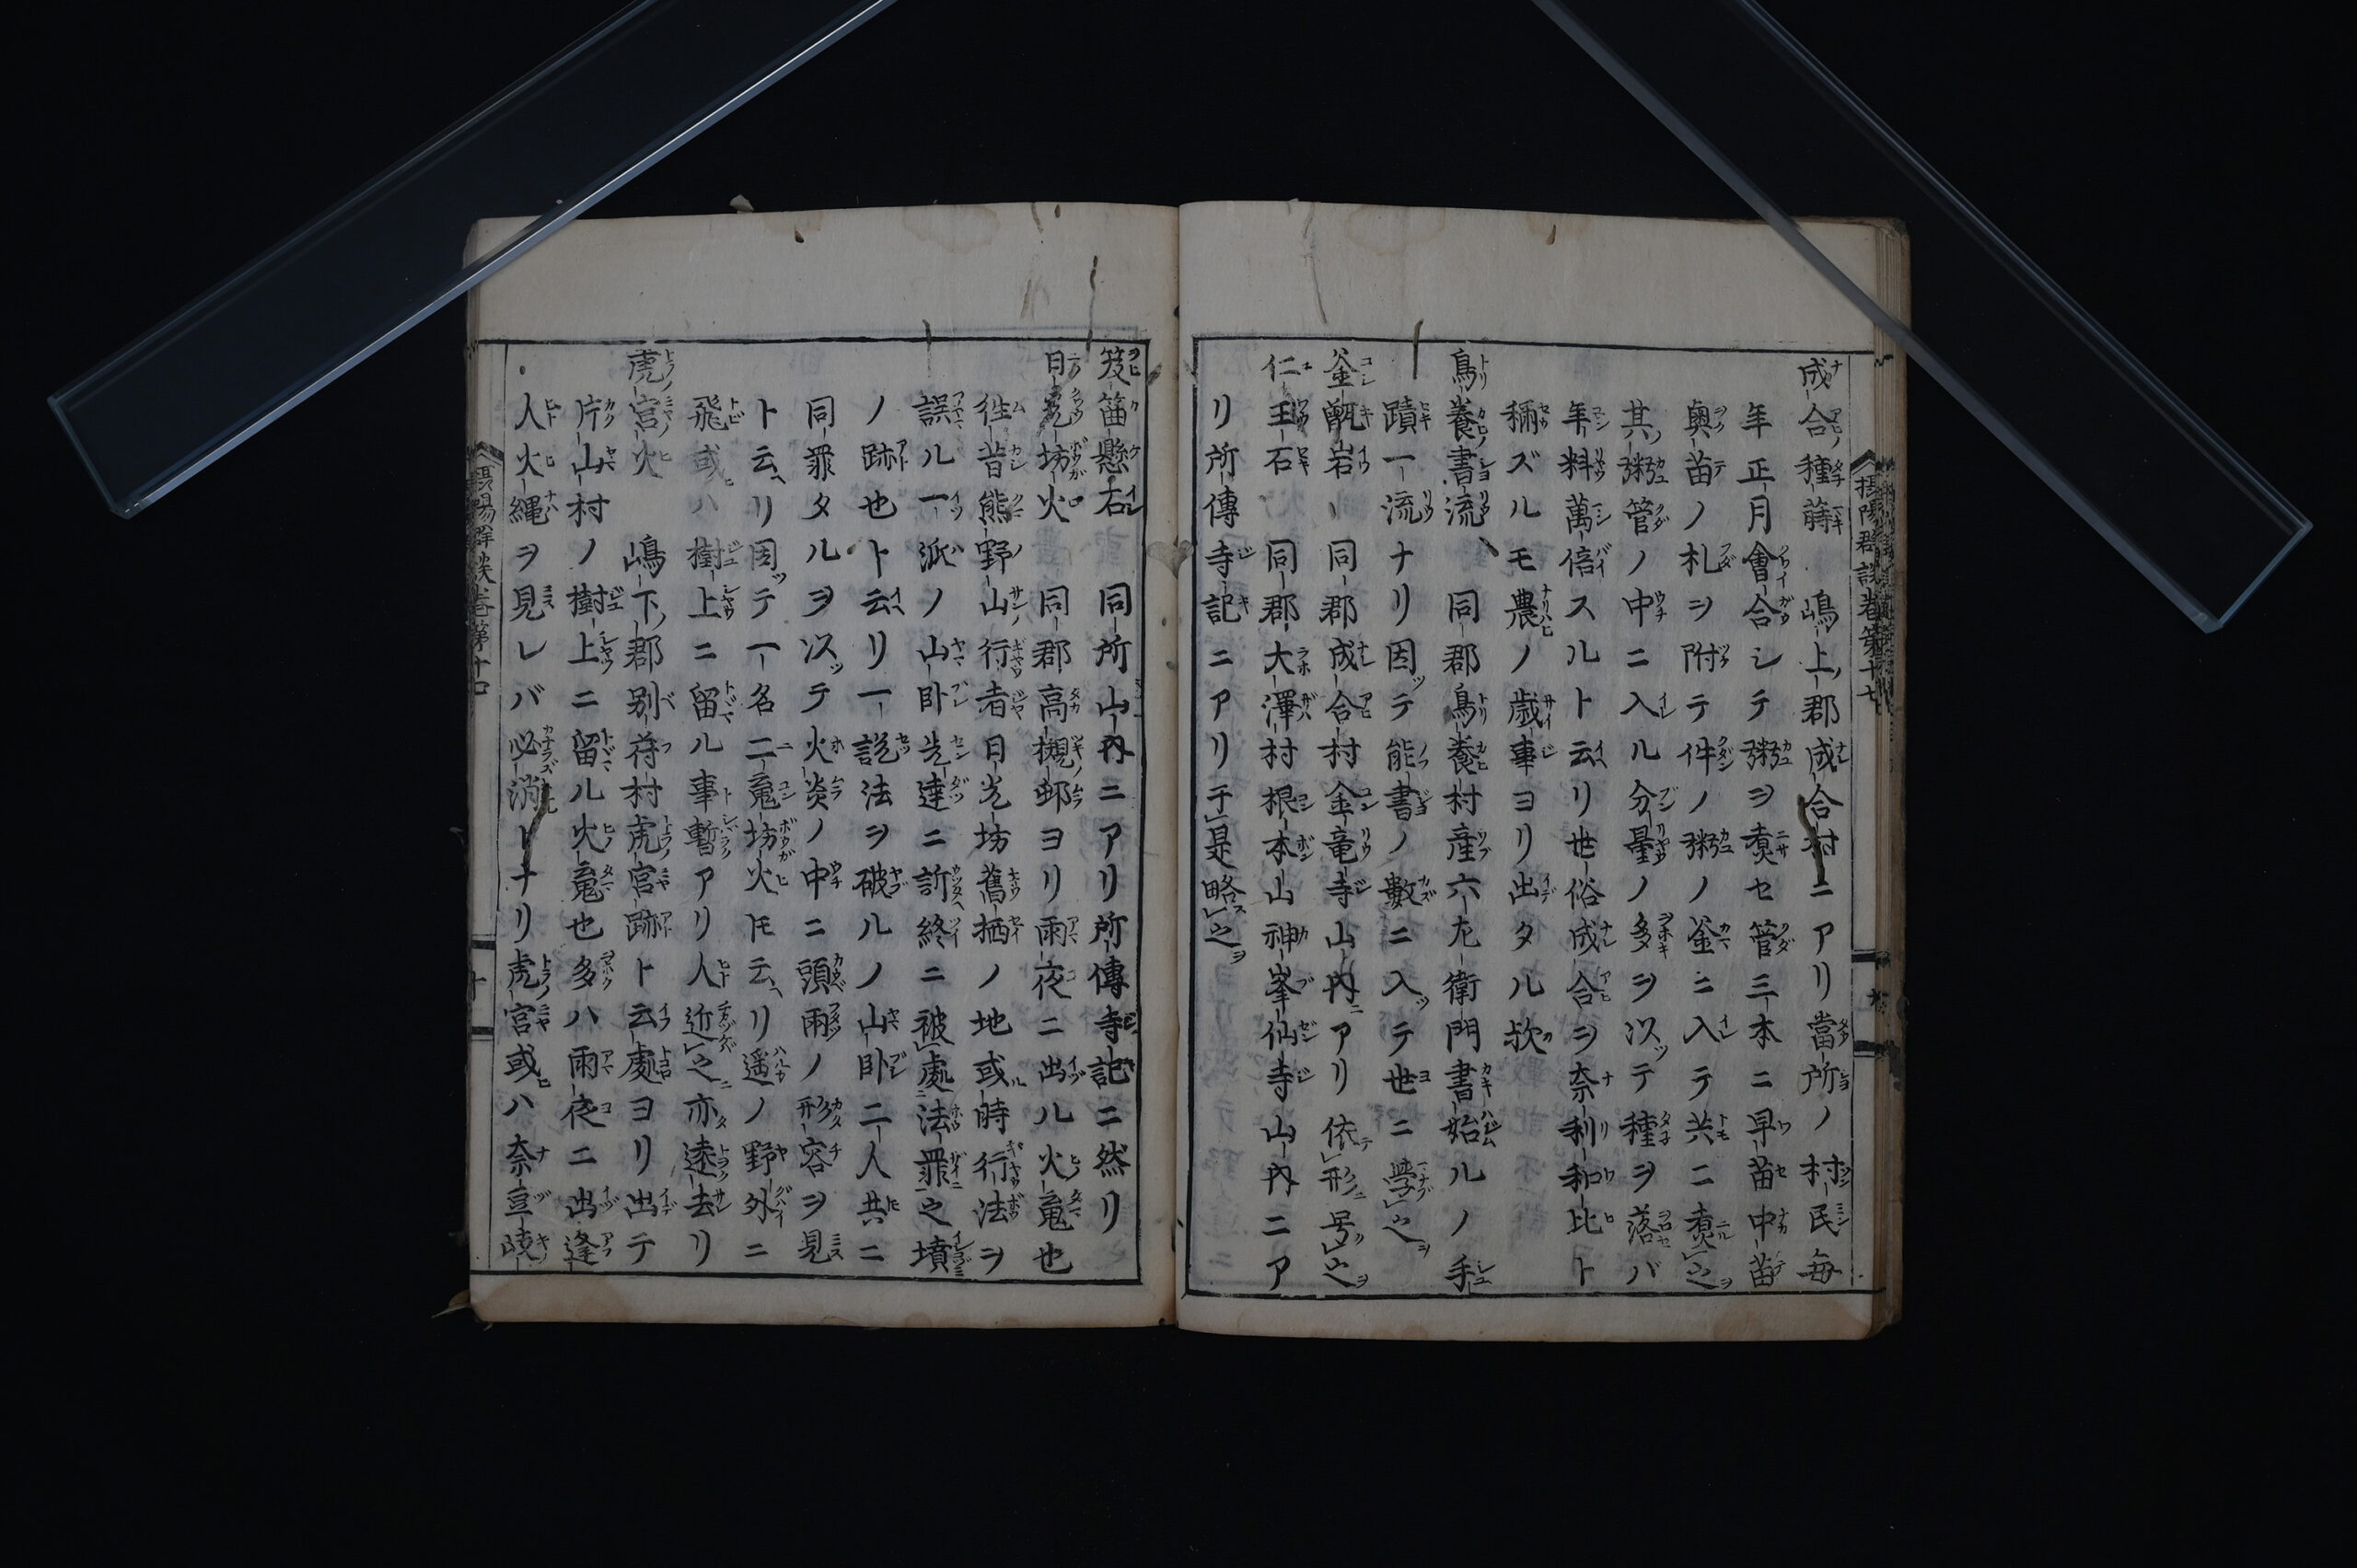 成合種蒔　嶋上ノ郡成合村ニアリ當所ノ村民毎
年正月會合シテ粥ヲ煑セ管三本ニ早苗中苗
奥苗ノ札ヲ附テ件ノ粥ノ釜ニ入テ共ニ煑之
其粥管ノ中ニ入ル分量ノ多ヲ以テ種ヲ落セバ
年料萬倍スルト云リ世俗成合ヲ奈利和比ト
稱ズルモ農ノ歳事ヨリ出タル歟
鳥養書流　同郡鳥養村産六左衛門書始ルノ手
蹟一流ナリ因テ能書ノ數ニ入テ世ニ學之
釜甑岩　同郡成合村金竜寺山内ニアリ依形号之
仁王石　同郡大澤村根本山神峯仙寺山内ニア
リ所傳寺記ニアリ于是略之
笈笛懸石　同所山内ニアリ所傳寺記ニ然リ
日光坊火　同郡高槻邨ヨリ雨夜ニ出ル火魂也
徃昔熊野山行者日光坊舊栖ノ地或時行法ヲ
誤ル一派ノ山卧先達ニ訴終ニ被處法罪之墳
ノ跡也ト云リ一説法ヲ破ルノ山卧二人共ニ
同罪タルヲ以テ火炎ノ中ニ頭兩ノ形容ヲ見
ト云リ因テ一名二魂坊火トモ云リ遥ノ野外ニ
飛或ハ樹上ニ留ル事暫アリ人近之亦遠去リ
虎宮火　嶋下ノ郡別符村虎宮跡ト云處ヨリ出テ
片山村ノ樹上ニ留ル火魂也多ハ雨夜ニ出逢
人火縄ヲ見レバ必消トナリ虎宮或ハ奈豆岐
摂陽群談巻第十七